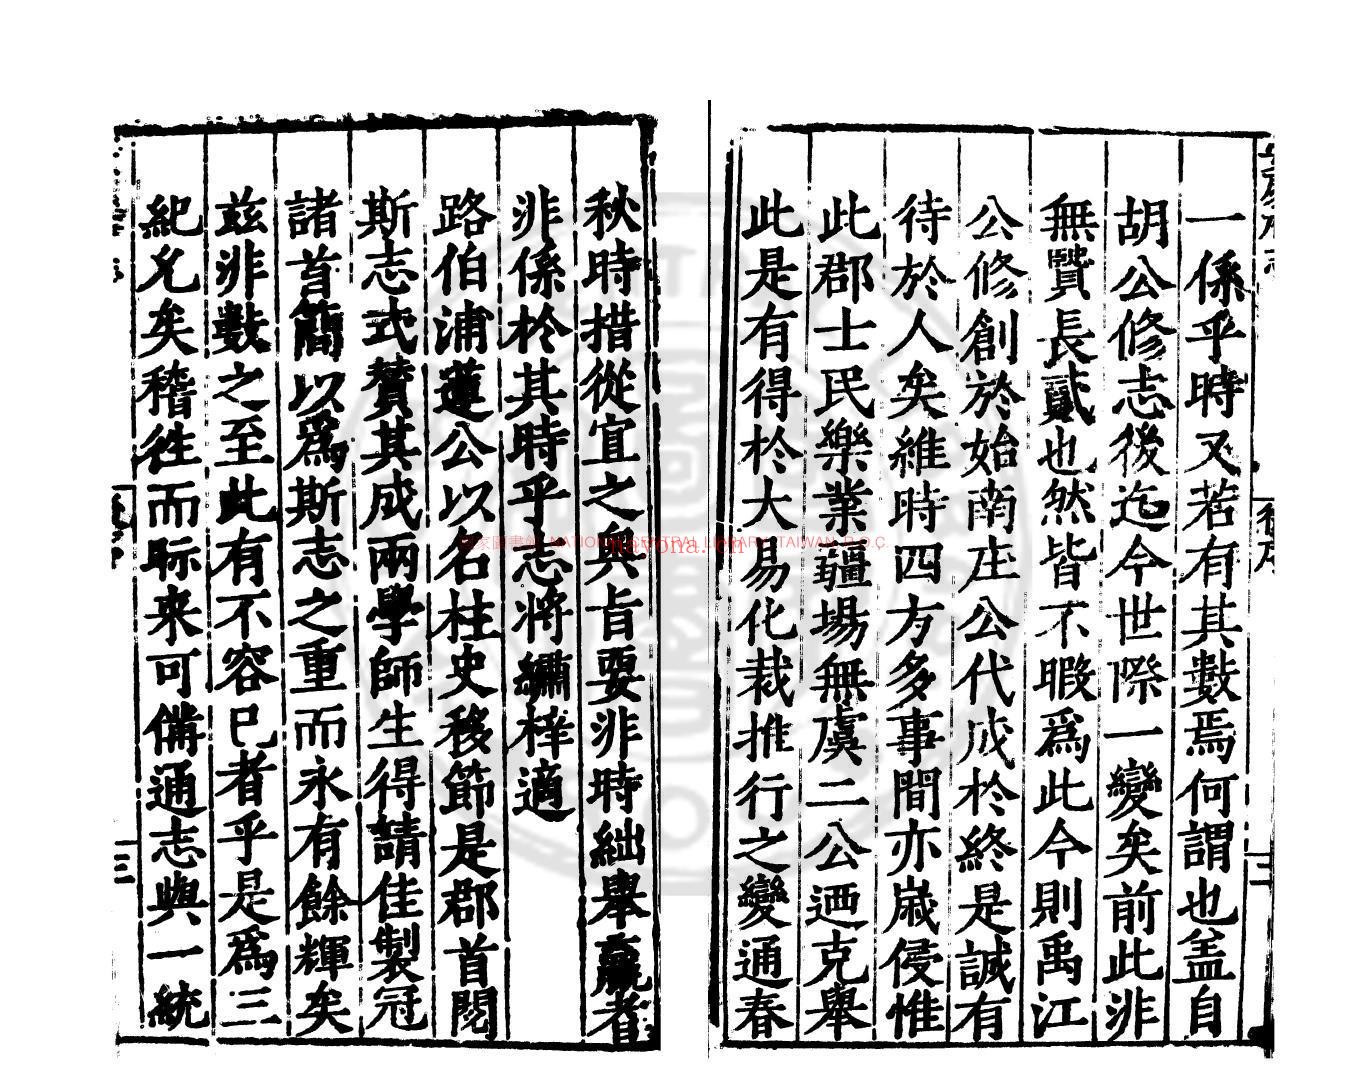 一係乎時又若有其數焉何謂也盖自
胡公修志後迄今世際一變矣前此非
無賢長貳也然皆不暇爲此今則禹江
公修創於始南庄公代成於終是誠有
待於人矣維時四方多事間亦嵗侵惟
此郡士民樂業疆場無虞二公迺克舉
此是有得於大易化裁推行之變通春
秋時措從宜之與旨要非時絀舉羸者
非係於其時乎志將繡梓適
路伯浦蓮公以名柱史移節是郡首閱
斯志式贊其成兩學師生得請佳製冠
諸首簡以爲斯志之重而永有餘輝矣
兹非數之至此有不容已者乎是爲三
紀允矣稽徃而眎来可備通志與一統
後序
二
三
國家圖書館 NATIONAL CENTRAL LIBRARY, TAIWAN, R.O.C.
navona.cn